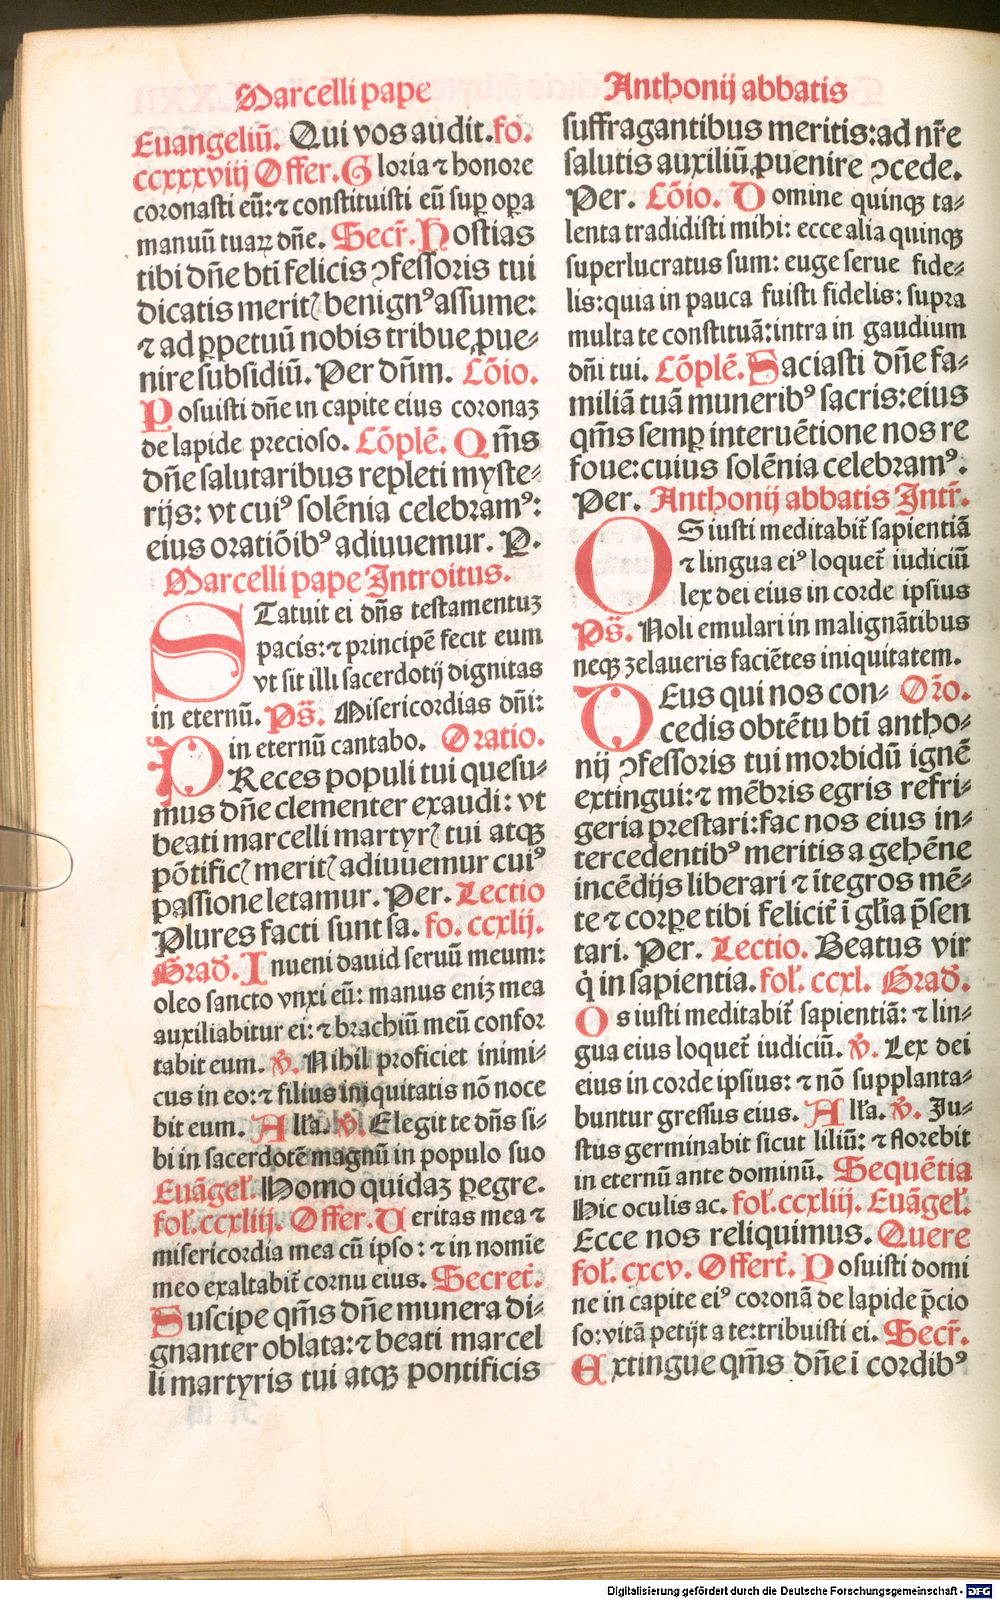 Marcelli pape
Euangeliū. Qui vos audit. fo.
ccxxxviij Offer. Gloria ⁊ honore
coronasti eū: ⁊ constituisti eū suꝑ oꝑa
manuū tuaꝝ dn̄e. Secr̄. Hostias
tibi dn̄e bt̄i felicis ꝯfessoris tui
dicatis meritꝭ benignꝰ assume:
⁊ ad ꝑpetuū nobis tribue ꝓue⸗
nire subsidiū. Per dn̄m. Cōio.
Posuisti dn̄e in capite eius coronaꝫ
de lapide precioso. Cōplē. Qm̄s
dn̄e salutaribus repleti myste⸗
rijs: vt cuiꝰ solēnia celebramꝰ:
eius oratiōibꝰ adiuuemur. P.
Marcelli pape Introitus.
Statuit ei dn̄s testamentuꝫ
pacis: ⁊ principē fecit eum
vt sit illi sacerdotij dignitas
in eternū. Ps̄. Misericordias dn̄i:
in eternū cantabo. Oratio.
PReces populi tui quesu⸗
mus dn̄e clementer exaudi: vt
beati marcelli martyrꝭ tui atqꝫ
pōtificꝭ meritꝭ adiuuemur cuiꝰ
passione letamur. Per. Lectio
Plures facti sunt sa. fo. ccxlij.
Grad̄. Inueni dauid seruū meum:
oleo sancto vnxi eū: manus eniꝫ mea
auxiliabitur ei: ⁊ brachiū meū confor
tabit eum. v̄. Nihil proficiet inimi⸗
cus in eo: ⁊ filius iniquitatis nō noce
bit eum. Alľa. v̄. Elegit te dn̄s si⸗
bi in sacerdotē magnū in populo suo
Euāgeľ. Homo quidaꝫ ꝑegre.
foľ. ccxliij. Offer. Veritas mea ⁊
misericordia mea cū ipso: ⁊ in nomīe
meo exaltabit̄ cornu eius. Secret̄.
Suscipe qm̄s dn̄e munera di⸗
gnanter oblata: ⁊ beati marcel
li martyris tui atqꝫ pontificis
Anthonij abbatis
suffragantibus meritis: ad nr̄e
salutis auxiliū ꝓuenire ꝯcede.
Per. Cōio. Domine quinqꝫ ta⸗
lenta tradidisti mihi: ecce alia quinqꝫ
superlucratus sum: euge serue fide⸗
lis: quia in pauca fuisti fidelis: supra
multa te constituā: intra in gaudium
dn̄i tui. Cōplē. Saciasti dn̄e fa⸗
miliā tuā muneribꝰ sacris: eius
qm̄s semꝑ interuētione nos re
foue: cuius solēnia celebramꝰ.
Per. Anthonij abbatis Intr̄.
OS iusti meditabit̄ sapientiā
⁊ lingua eiꝰ loquet̄ iudiciū
lex dei eius in corde ipsius
Ps̄. Noli emulari in malignātibus
neqꝫ zelaueris faciētes iniquitatem.
DEus qui nos con⸗ Or̄o.
cedis obtētu bt̄i antho⸗
nij ꝯfessoris tui morbidū ignē
extingui: ⁊ mēbris egris refri⸗
geria prestari: fac nos eius in⸗
tercedentibꝰ meritis a gehēne
incēdijs liberari ⁊ ītegros mē⸗
te ⁊ corꝑe tibi felicit̄ ī gľia p̄sen
tari. Per. Lectio. Beatus vir
q̇ in sapientia. foľ. ccxl. Grad̄.
Os iusti meditabit̄ sapientiā: ⁊ lin⸗
gua eius loquet̄ iudiciū. v̄. Lex dei
eius in corde ipsius: ⁊ nō supplanta⸗
buntur gressus eius. Alľa. v̄. Ju⸗
stus germinabit sicut liliū: ⁊ florebit
in eternū ante dominū. Sequētia
Hic oculis ac. foľ. ccxliij. Euāgeľ.
Ecce nos reliquimus. Quere
foľ. cxcv. Offert̄. Posuisti domi
ne in capite eiꝰ coronā de lapide p̄cio
so: vitā petijt a te: tribuisti ei. Secr̄.
Extingue qm̄s dn̄e ī cordibꝰ
Digitalisierung gefördert durch die Deutsche Forschungsgemeinschaft - DFG